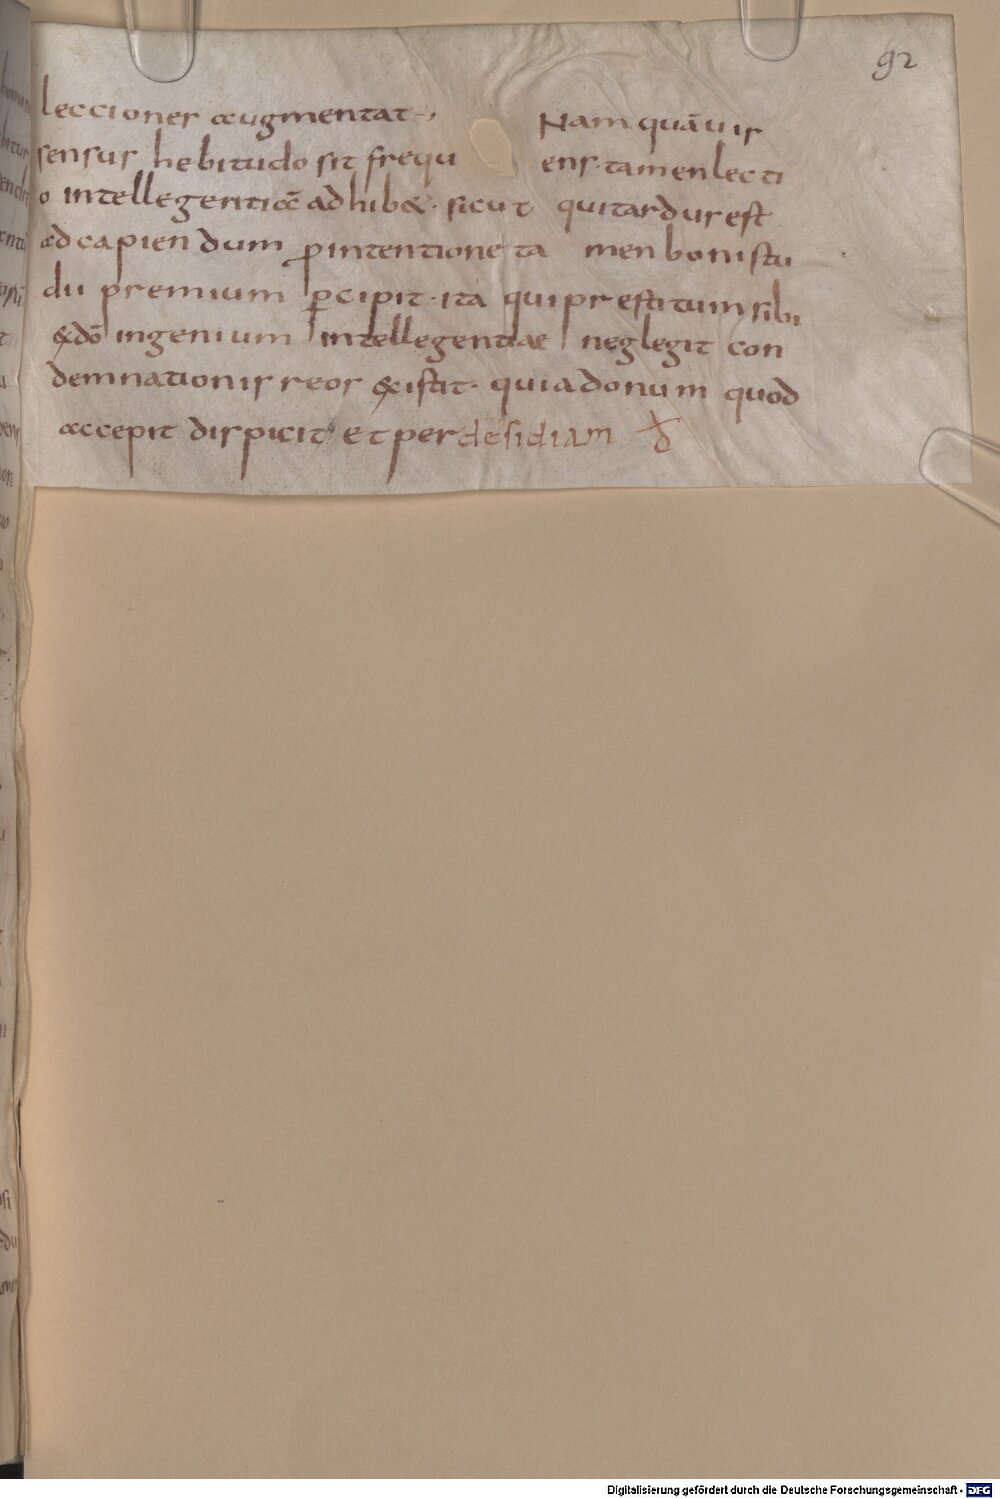 92
lecciones augmentat·,   Nam quāuis
sensus hebitudo sit frequ   ens· tamen lecti
o intellegentiā adhib&· sicut quitardus est
ad capiendum p̄intentione ta men boni stu
dii premium p̄cipit· ita qui prestitum sibi
&dō ingenium intellegentiae neglegit con
demnationis reos existit· quia donum quod
accepit dispicit et per desidiam
Digitalisierung gefördert durch die Deutsche Forschungsgemeinschaft - DFG